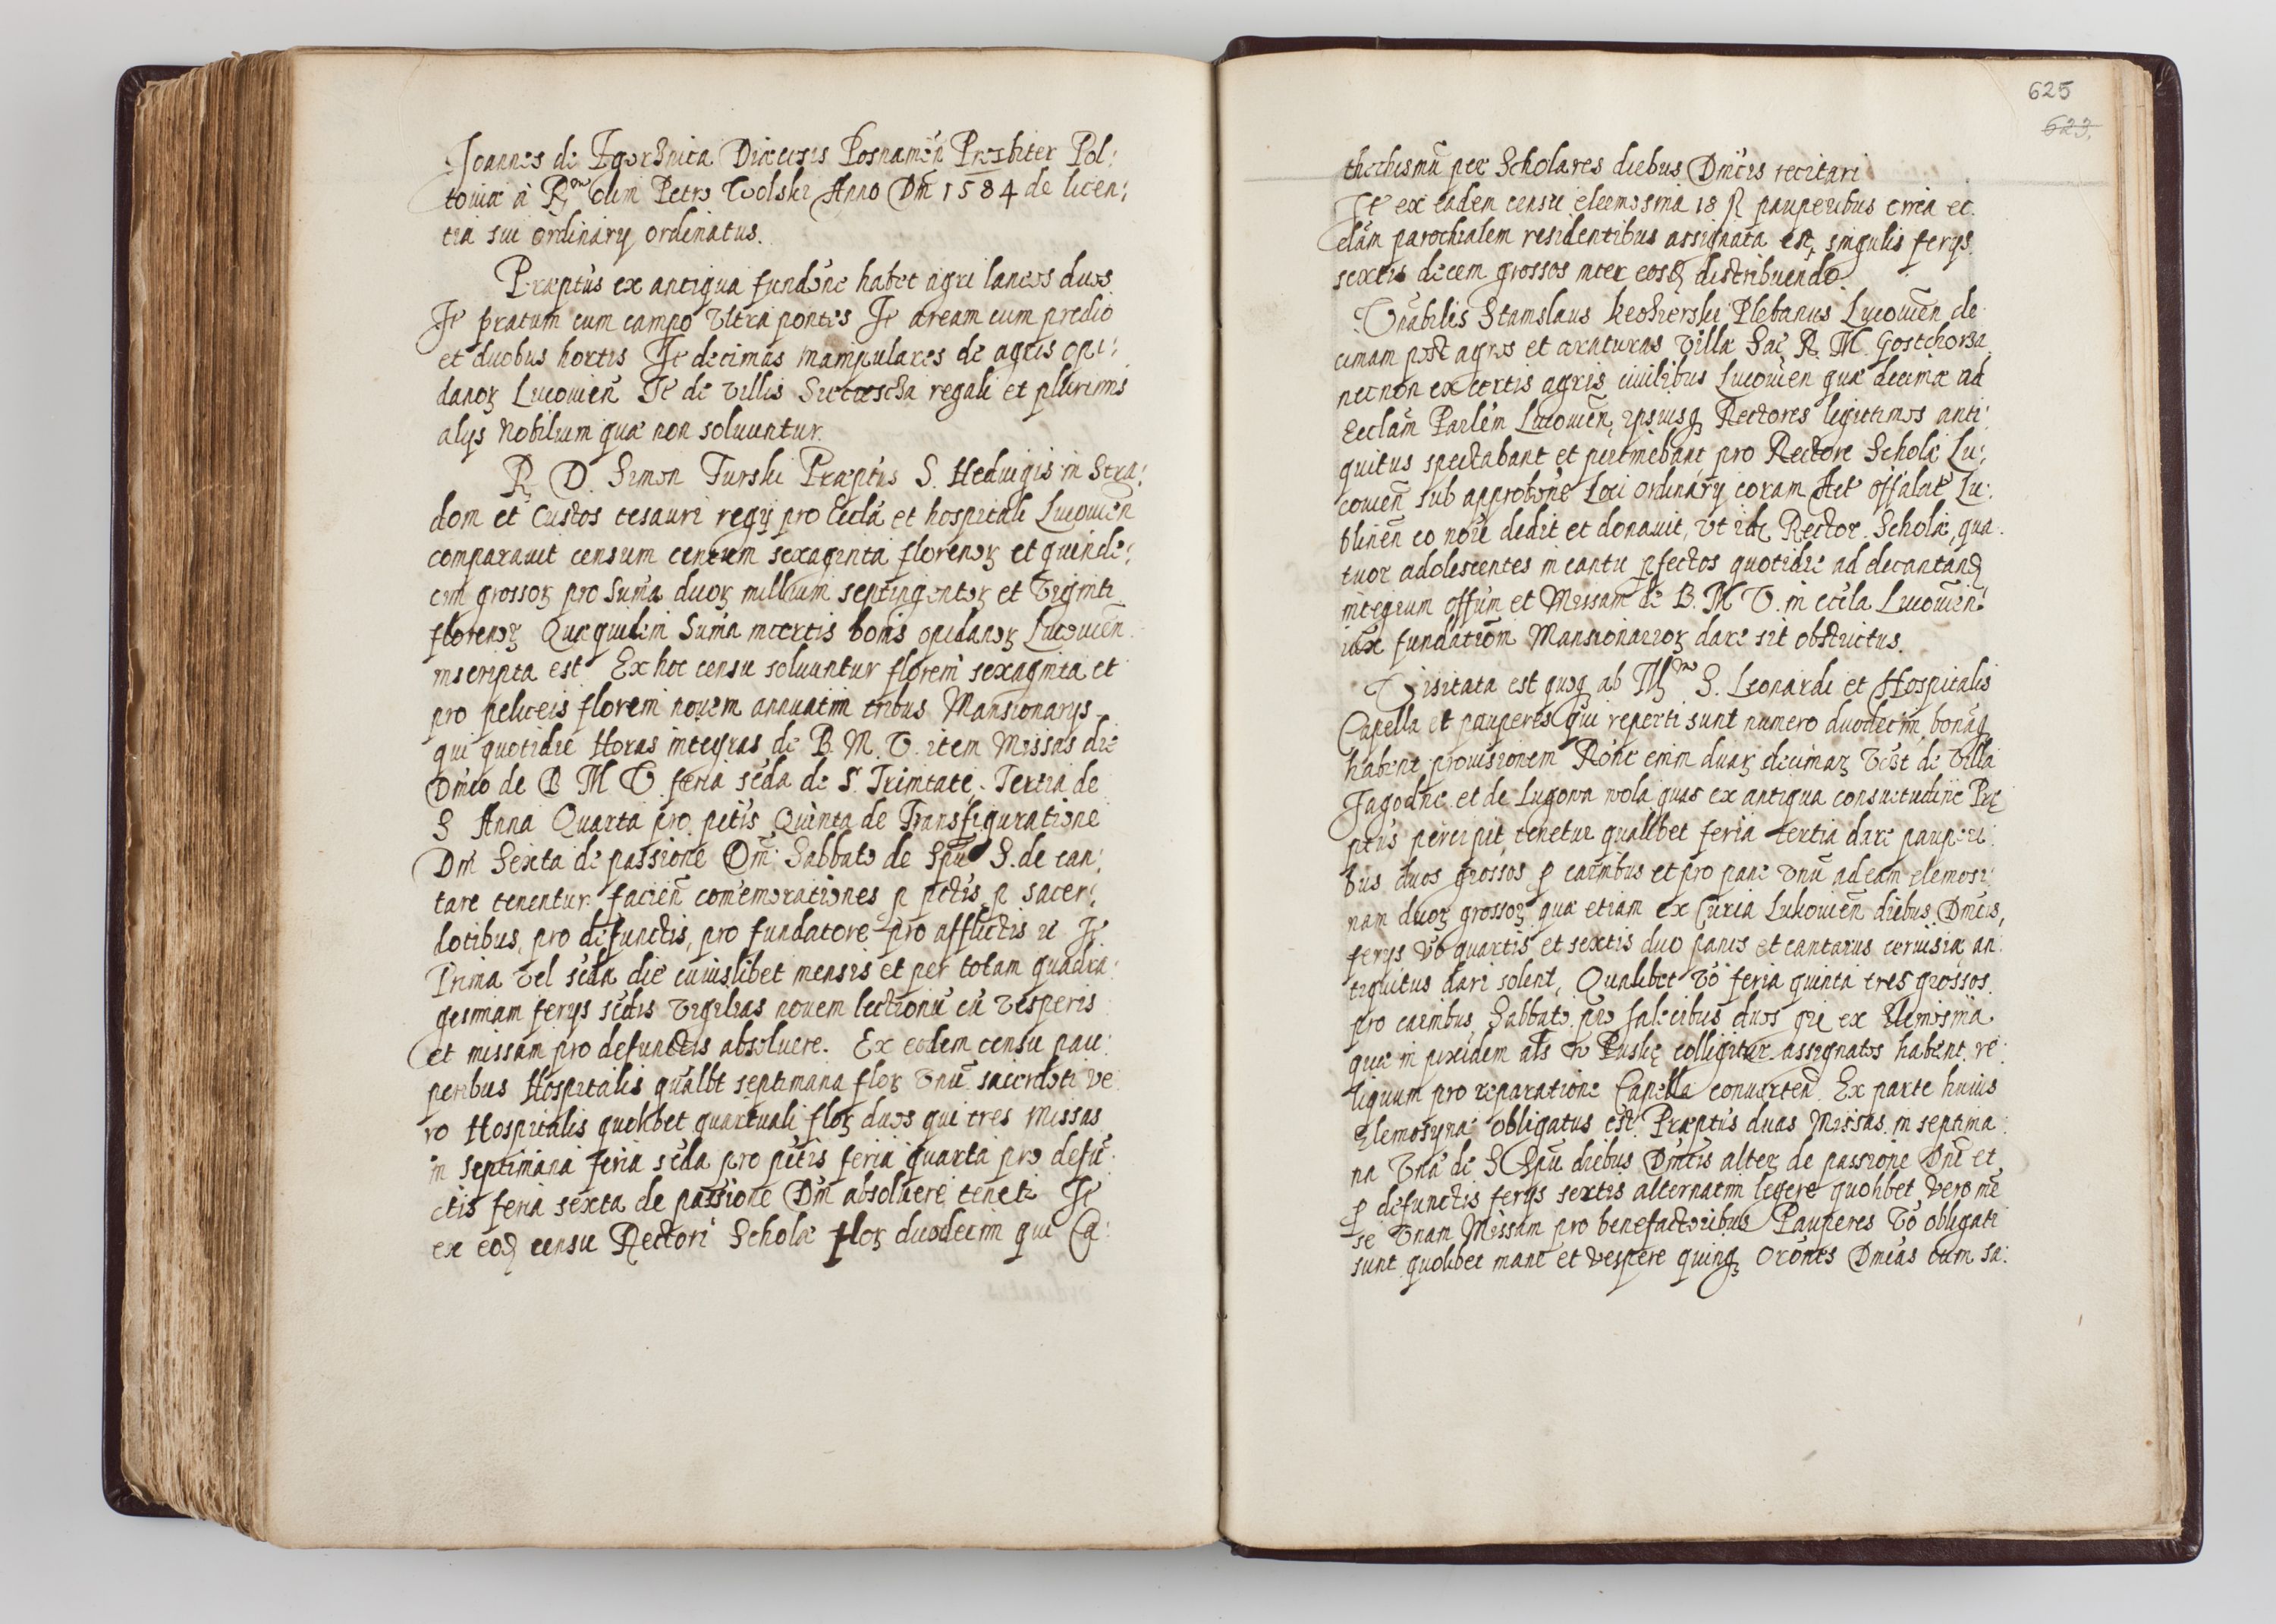 Joannes de Zgorznica Diæcesis Posnamen̄ Presbiter Pol:
touiæ à R̃mo olim Petro Wolski Anno Dm̄ 1584 de licen:
tia sui ordinarÿ ordinatus.
Præptus ex antiqua fundōne habet agri laneos duos
It̄ pratum cum campo Vltra pontes It̄ aream cum predio
et duobus hortis It̄ decimas manipulares de agris opi:
danoꝝ Lucouien̄ It̄ de villis regali et plurimis
alijs Nobilium quæ non soluuntur.
R. D. Simon Turski Præptus S. Heduigis in Stra:
dom et Custos tesauri regij pro Eccla et hospitali Lucouien̄
comparauit censum centum sexaginta florenoꝝ et quinde:
cim grossoꝝ pro Suma duoꝝ millium septingentoꝝ et Viginti
florenoꝝ Quæquidem Suma incertis bonis opidanoꝝ Lucouien̄
inscripta est Ex hoc censu soluuntur floreni sexaginta et
pro peliceis floreni nouem annuatim tribus Mansionarijs
qui quotidie Horas integras de B. M. V. item Missas die
Dnico de B M V feria sc̄da de S. Trinitate, Tertia de
S Anna Quarta pro pctis Quinta de Transfiguratione
Dni Sexta de passione Dni Sabbato de Spū S. de can:
tare tenentur facien̄ comemorationes p pctis, p sacer:
dotibus, pro defunctis, pro fundatore pro afflictis It̄
Prima vel sc̄da die cuiuslibet mensis et per totam quadra:
gesimam ferijs sc̄dis vigilias nouem lectionū cū vesperis
et missam pro defunctis absoluere. Ex eodem censu pau:
peribus Hospitalis qualbt septimana floꝝ vnū sacerdoti ve
ro Hospitalis quolibet quartuali floꝝ duos qui tres Missas
in septimana feria sc̄da pro pctis feria quarta pro defū:
ctis feria sexta de passione Dni absoluere It̄
ex eod censu Rectori Scholæ floꝝ duodecim qui Ca:
625
623.
thechismū per Scholares diebus Dnicis recitari
It̄ ex eadem censu eleemosina 18 pauperibus circa ec:
clam parochialem residentibus assignata est, singulis ferijs
sextis decem grossos inter eosd distribuendo.
Vnabilis Stanislaus Plebanus Lucouien̄ de
cimam post agros et araturas villæ Sac R. M. Gostchorza
necnon ex certis agris ciuilibus Lucouien quæ decimæ ad
Ecclam Parlem Lucouien, ipsiusq Rectores legittimos anti:
quitus spectabant et pertinebant pro Rectore Scholæ Lu:
couien̄ sub approbōne Loci ordinarÿ coram Act Offālat Lu:
blinen̄ eo noīe dedit et donauit, vt Rector Scholæ, qua
tuor adolescentes in cantu pfectos quotidie ad decantand
integrum offūm et Missam de B. M V. in eccla Lucouien:
iux fundationem Mansionarioꝝ dare sit obstrictus.
Visitata est quoq ab Illmo S. Leonardi et Hospitalis
Capella et pauperes qui reperti sunt numero duodecim bonāq
habent prouisionem Rōne enim duaꝝ decimaꝝ vēst de villa
Jagodne et de Lugowa wola quas ex antiqua consuetudine Præ
ptus percipit, tenetur qualibet feria tertia dare pauperi:
bus duos grossos p carnibus et pro pane vnū ad eam elemosi:
nam duoꝝ grossoꝝ quæ etiam ex Curia Lukouien̄ diebus Dnicis,
ferijs Vō quartis et sextis duo panes et cantarus ceruisiæ an:
tiquitus dari solent, Qualibet Vō feria quinta tres grossos
pro carnibus Sabbato pro duos qui ex Elemosina
quæ in pixidem als w Puskę colligitur assignatos habent re
liquum pro reparatione Capellæ conuerten̄ Ex parte huius
Elemosynæ obligatus est Præptus duas Missas in septima:
na vnā de S Spū diebus Dnicis de passione Dni et
p defunctis ferijs sextis alternatim legere quolibet vero mē
se vnam Missam pro benefactoribus Pauperes Vō obligati
sunt quolibet mane et vespere quinq Orōnes Dnicas cum sa: